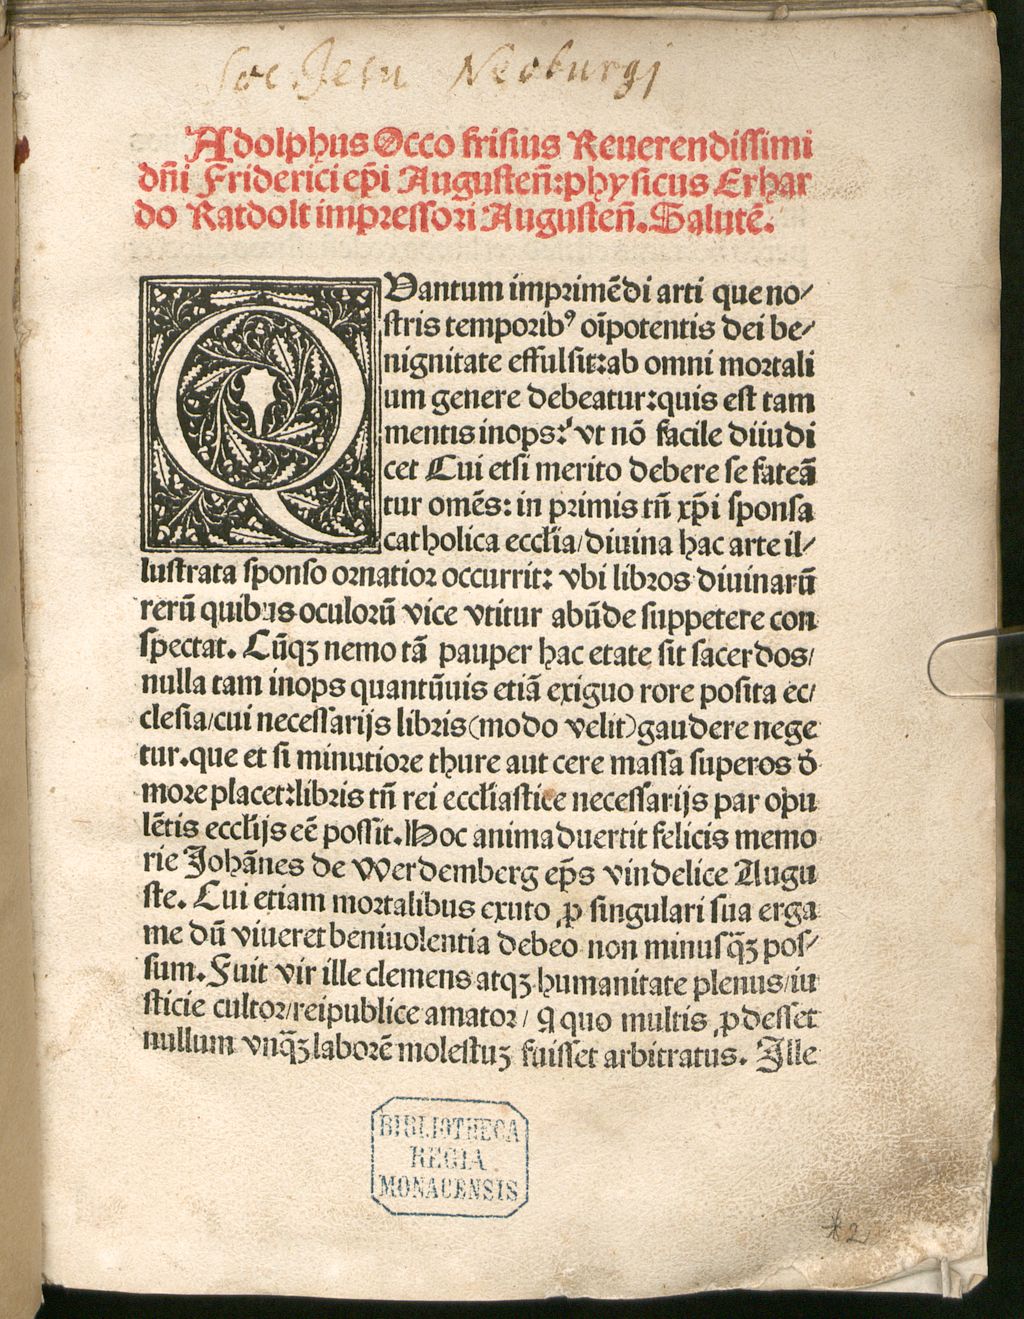 Soc. Jesu Neoburgj
Adolphus Occo frisius Reuerendissimi
dñi Friderici ep̃i Augusteñ:physicus Erhar
do Ratdolt impressori Augusteñ. Salutẽ.
QVantum imprimẽdi arti que no/
stris temporibꝰ oĩpotentis dei be/
nignitate effulsit:ab omni mortali
um genere debeatur:quis est tam
mentis inops:vt nõ facile diiudi
cet Cui etsi merito debere se fateã
tur omẽs: in primis tñ xp̃i sponsa
catholica eccl̃ia/diuina hac arte il/
lustrata sponso ornatior occurrit: vbi libros diuinarũ
rerũ quibus oculorũ vice vtitur abũde suppetere con
spectat. Cũqꝫ nemo tã pauper hac etate sit sacerdos/
nulla tam inops quantũuis etiã exiguo rore posita ec/
clesia/cui necessarijs libris(modo velit)gaudere nege
tur.que et si minutiore thure aut cere massa superos d̕
more placet:libris tñ rei eccl̃iastice necessarijs par opu
lẽtis eccl̃ijs eẽ possit. Hoc animaduertit felicis memo
rie Johãnes de Werdemberg ep̃s vindelice Augu
ste. Cui etiam mortalibus exuto ꝓ singulari sua erga
me dũ viueret beniuolentia debeo non minusqꝫ̃ pos/
sum. Fuit vir ille clemens atqꝫ humanitate plenus/iu
sticie cultor/reipublice amator/ ꝙ quo multis ꝓdesset
nullum vnqꝫ̃ laborẽ molestuꝫ fuisset arbitratus. Ille
BIBLIOTHECA
REGIA
MONACENSIS
*2